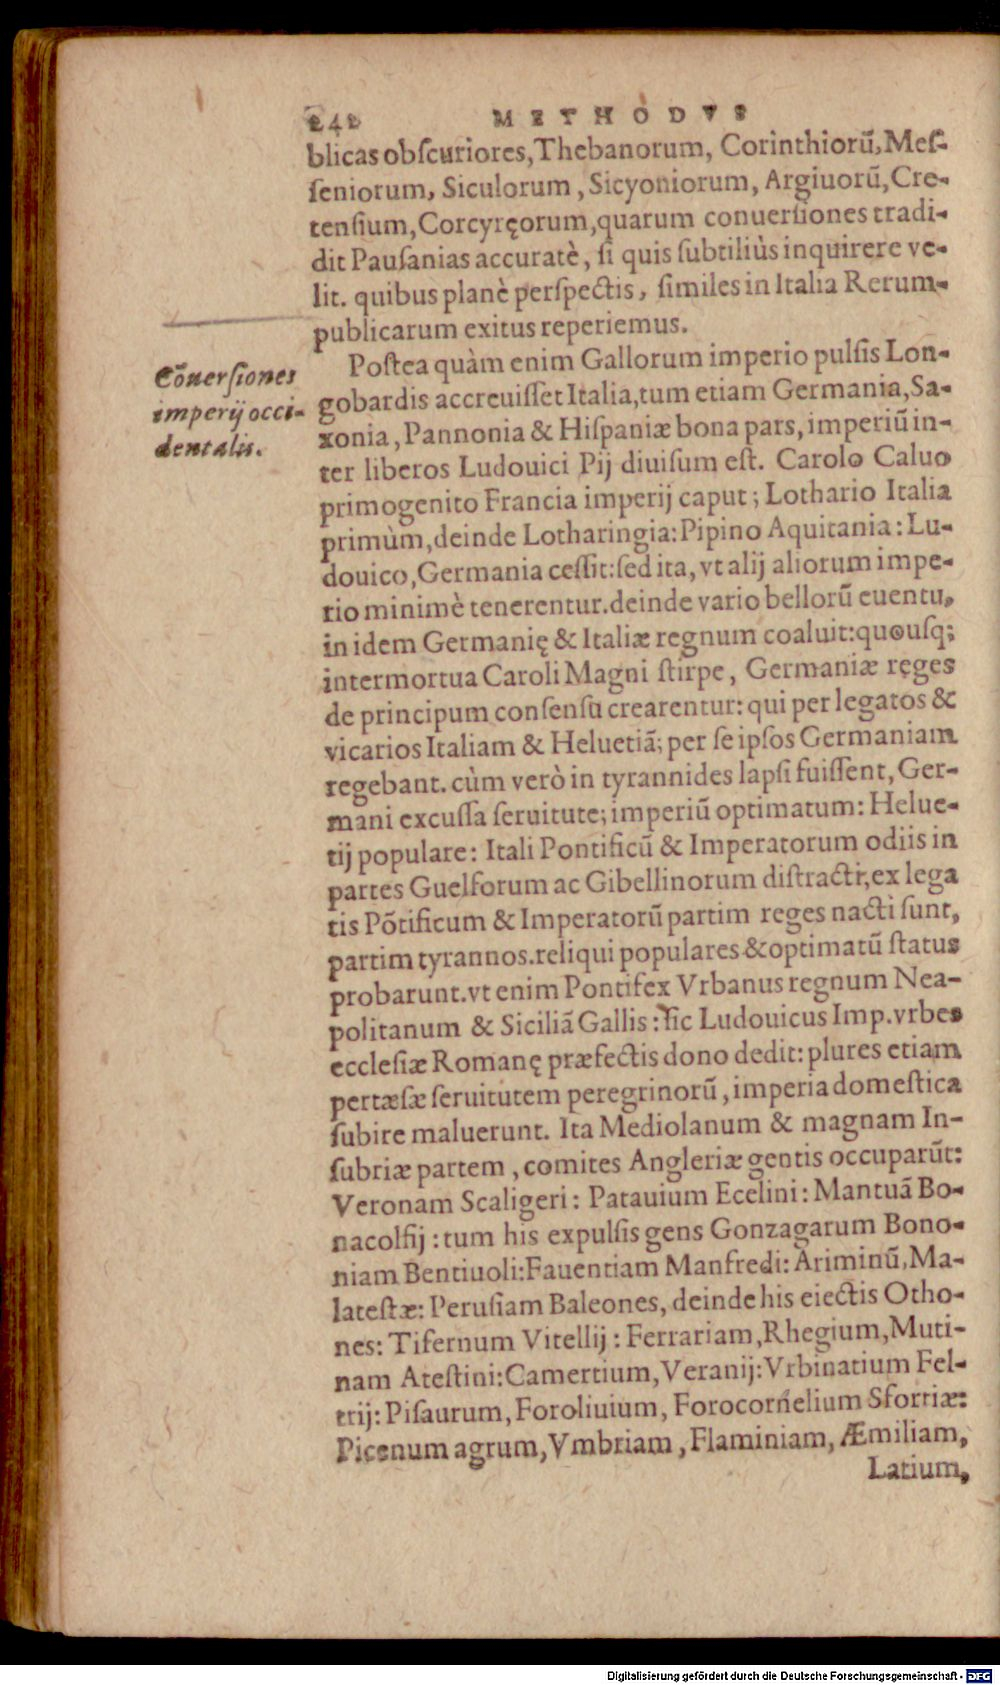 242 METHODVS
blicas obſcuriores, Thebanorum, Corinthiorū, Meſ-
ſeniorum, Siculorum, Sicyoniorum, Argiuorū, Cre-
tenſium, Corcyręorum, quarum conuerſiones tradi-
dit Pauſanias accuratè, ſi quis ſubtiliùs inquirere ve-
lit. quibus planè perſpectis, ſimiles in Italia Rerum-
publicarum exitus reperiemus.
Cōuerſiones
imperij occi-
dentalis.
Poſtea quàm enim Gallorum imperio pulſis Lon-
gobardis accreuiſſet Italia, tum etiam Germania, Sa-
xonia, Pannonia & Hiſpaniæ bona pars, imperiū in-
ter liberos Ludouici Pij diuiſum eſt. Carolo Caluo
primogenito Francia imperij caput; Lothario Italia
primùm, deinde Lotharingia: Pipino Aquitania: Lu-
douico, Germania ceſſit: ſed ita, vt alij aliorum impe-
rio minimè tenerentur. deinde vario bellorū euentu,
in idem Germanię & Italiæ regnum coaluit: quouſq;
intermortua Caroli Magni ſtirpe, Germaniæ ręges
de principum conſenſu crearentur: qui per legatos &
vicarios Italiam & Heluetiā; per ſe ipſos Germaniam
regebant. cùm verò in tyrannides lapſi fuiſſent, Ger-
mani excuſſa ſeruitute; imperiū optimatum: Helue-
tij populare: Itali Pontificū & Imperatorum odiis in
partes Guelforum ac Gibellinorum diſtracti, ex lega
tis Pōtificum & Imperatorū partim reges nacti ſunt,
partim tyrannos. reliqui populares & optimatū ſtatus
probarunt. vt enim Pontifex Vrbanus regnum Nea-
politanum & Siciliā Gallis: ſic Ludouicus Imp. vrbes
eccleſiæ Romanę præfectis dono dedit: plures etiam
pertæſæ ſeruitutem peregrinorū, imperia domeſtica
ſubire maluerunt. Ita Mediolanum & magnam In-
ſubriæ partem, comites Angleriæ gentis occuparūt:
Veronam Scaligeri: Patauium Ecelini: Mantuā Bo-
nacolſij: tum his expulſis gens Gonzagarum Bono-
niam Bentiuoli: Fauentiam Manfredi: Ariminū, Ma-
lateſtæ: Peruſiam Baleones, deinde his eiectis Otho-
nes: Tifernum Vitellij: Ferrariam, Rhegium, Muti-
nam Ateſtini: Camertium, Veranij: Vrbinatium Fel-
trij: Piſaurum, Foroliuium, Forocornelium Sfortiæ:
Picenum agrum, Vmbriam, Flaminiam, Æmiliam,
Latium,
Digitalisierung gefördert durch die Deutsche Forschungsgemeinschaft - DFG